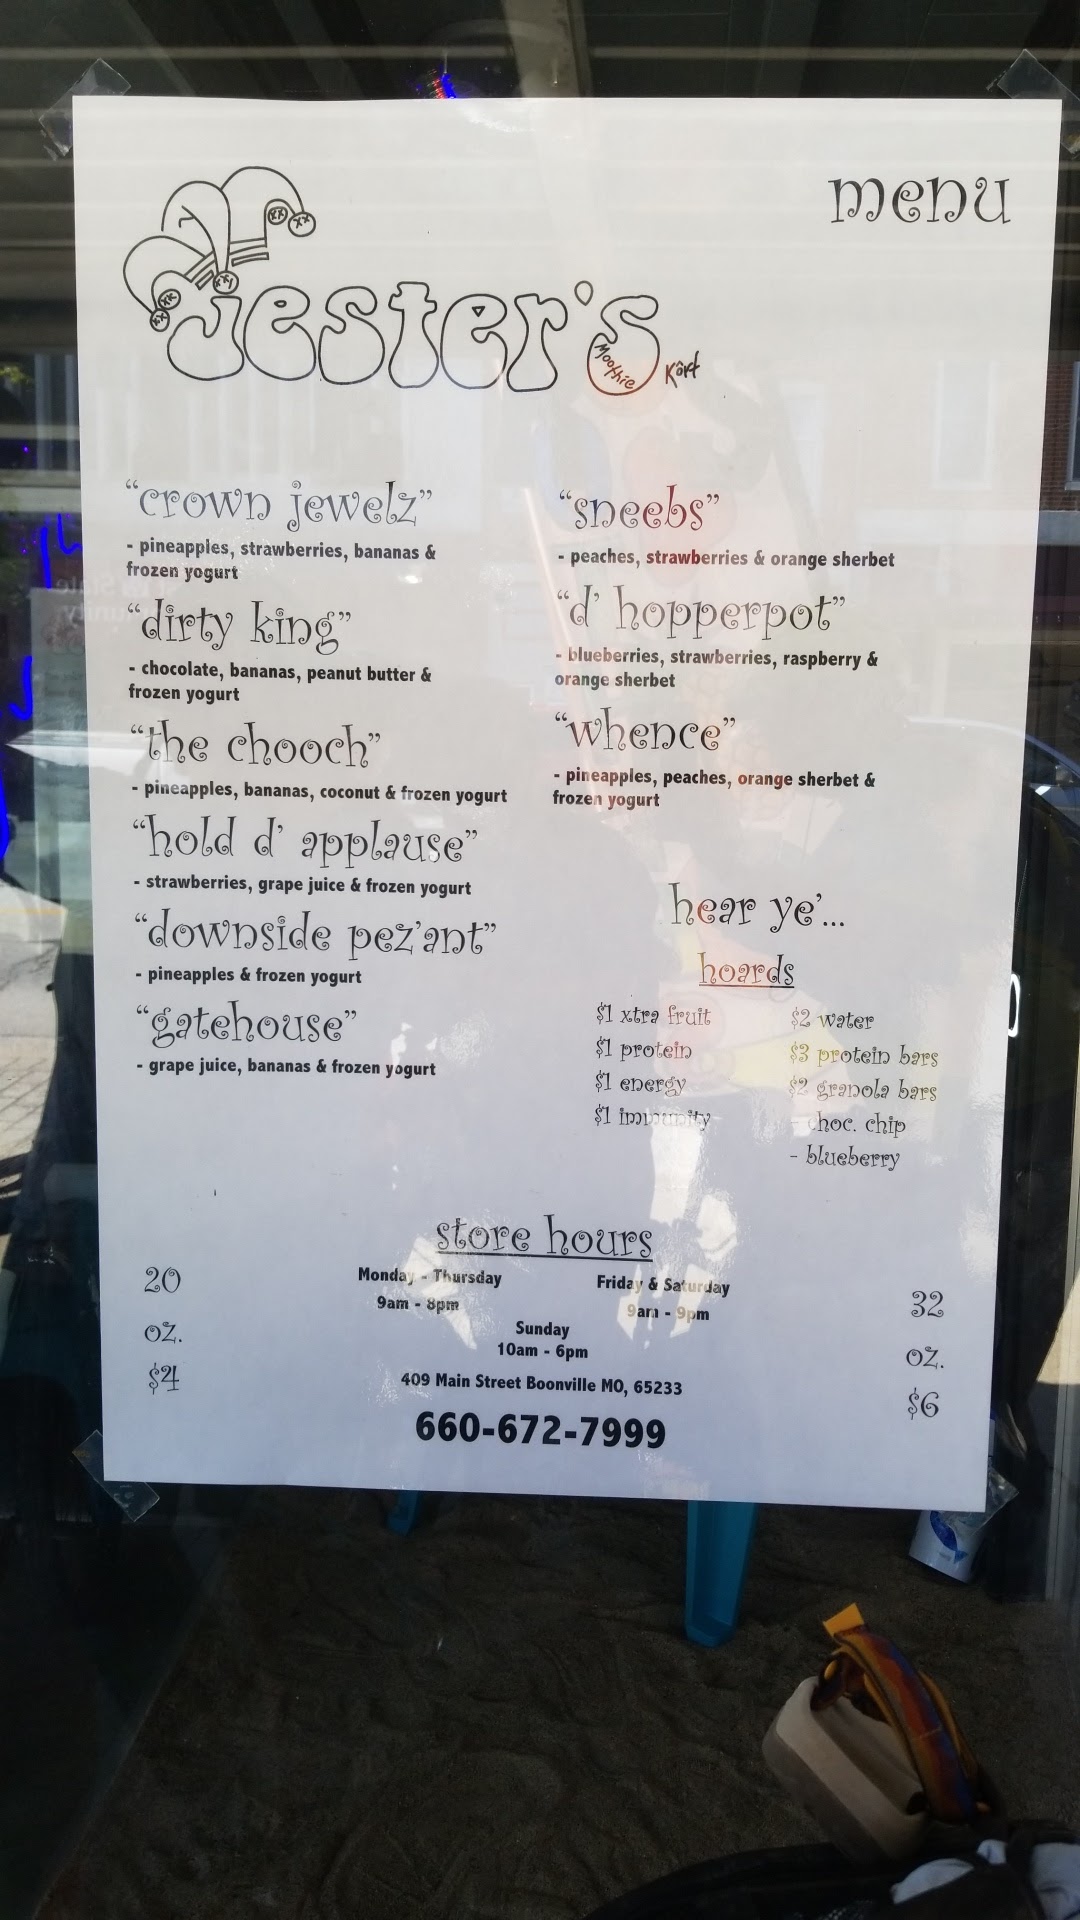 menu
Jester's
Moothie Kört
“crown jewelz”
- pineapples, strawberries, bananas &
frozen yogurt
“dirty king”
- chocolate, bananas, peanut butter &
frozen yogurt
“the chooch”
- pineapples, bananas, coconut & frozen yogurt
“hold d' applause”
- strawberries, grape juice & frozen yogurt
“downside pez'ant”
- pineapples & frozen yogurt
“gatehouse”
- grape juice, bananas & frozen yogurt
“sneebs”
- peaches, strawberries & orange sherbet
“d' hopperpot”
- blueberries, strawberries, raspberry &
orange sherbet
“whence”
- pineapples, peaches, orange sherbet &
frozen yogurt
hear ye'...
hoards
$1 xtra fruit
$1 protein
$1 energy
$1 immunity
$2 water
$3 protein bars
$2 granola bars
- choc. chip
- blueberry
store hours
Monday - Thursday
9am - 8pm
Friday & Saturday
9am - 9pm
Sunday
10am - 6pm
409 Main Street Boonville MO, 65233
660-672-7999
20
oz.
$4
32
oz.
$6